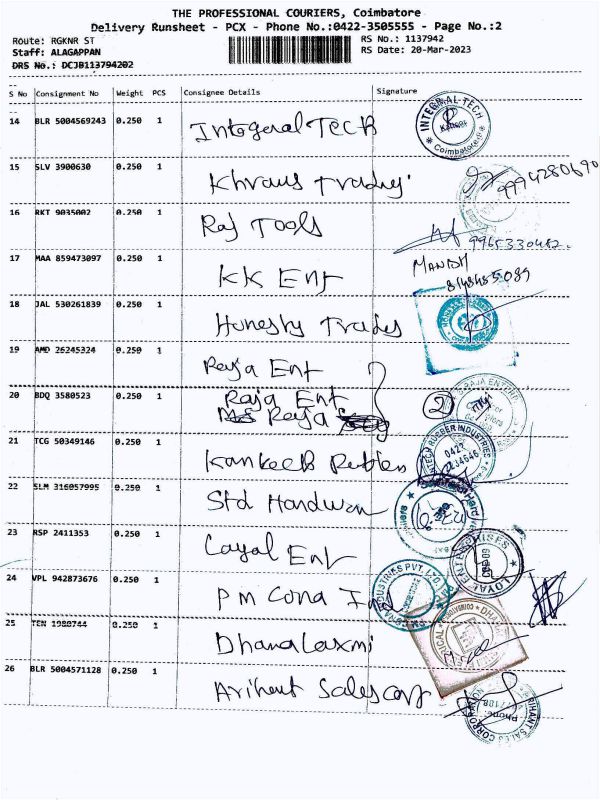 THE PROFESSIONAL COURIERS, Coimbatore
Delivery Runsheet - PCX - Phone No.:0422-3505555 - Page No.:2
Route: RGKNR ST
RS No.: 1137942
Staff: ALAGAPPAN
RS Date: 20-Mar-2023
DRS No.: DCJB113794202
S No Consignment No Weight PCS Consignee Details Signature
14 BLR 5004569243 0.250 1 Integeral TECB INTEGRAL-TECH Coimbatore
15 SLV 3900630 0.250 1 9994280690
16 RKT 9035002 0.250 1 Raj Tools 9965330482.
17 MAA 859473097 0.250 1 KK Ent MANISH
18 JAL 530261839 0.250 1 Honesty Trades
19 AMD 26245324 0.250 1 Raja Ent
20 BDQ 3580523 0.250 1 Raja Ent 2
Raja
21 TCG 50349146 0.250 1 RUBBER INDUSTRIES 0422
22 SLM 316057995 0.250 1 Std
23 RSP 2411353 0.250 1 Layal Ent LOYAL ENTERPRISES
24 VPL 942873676 0.250 1 PM Cona INDUSTRIES PVT. LTD.
25 TEN 1980744 0.250 1 Dhanalaxmi
26 BLR 5004571128 0.250 1 Arihant Sales Corp ARIHANT SALES CORPORATION Phone: